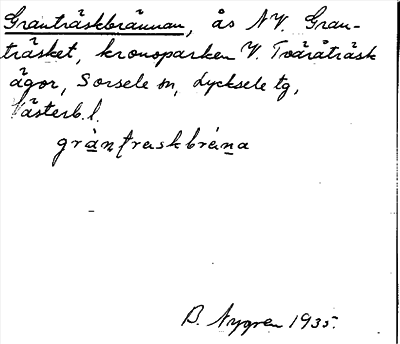 Granträskbrännan, ås NV. Gran-
träsket, kronoparken V. Tväråträsk
ägor, Sorsele sn, Lycksele tg,
Västerb. l.
gràntraskbréna
B. Nygren 1935.